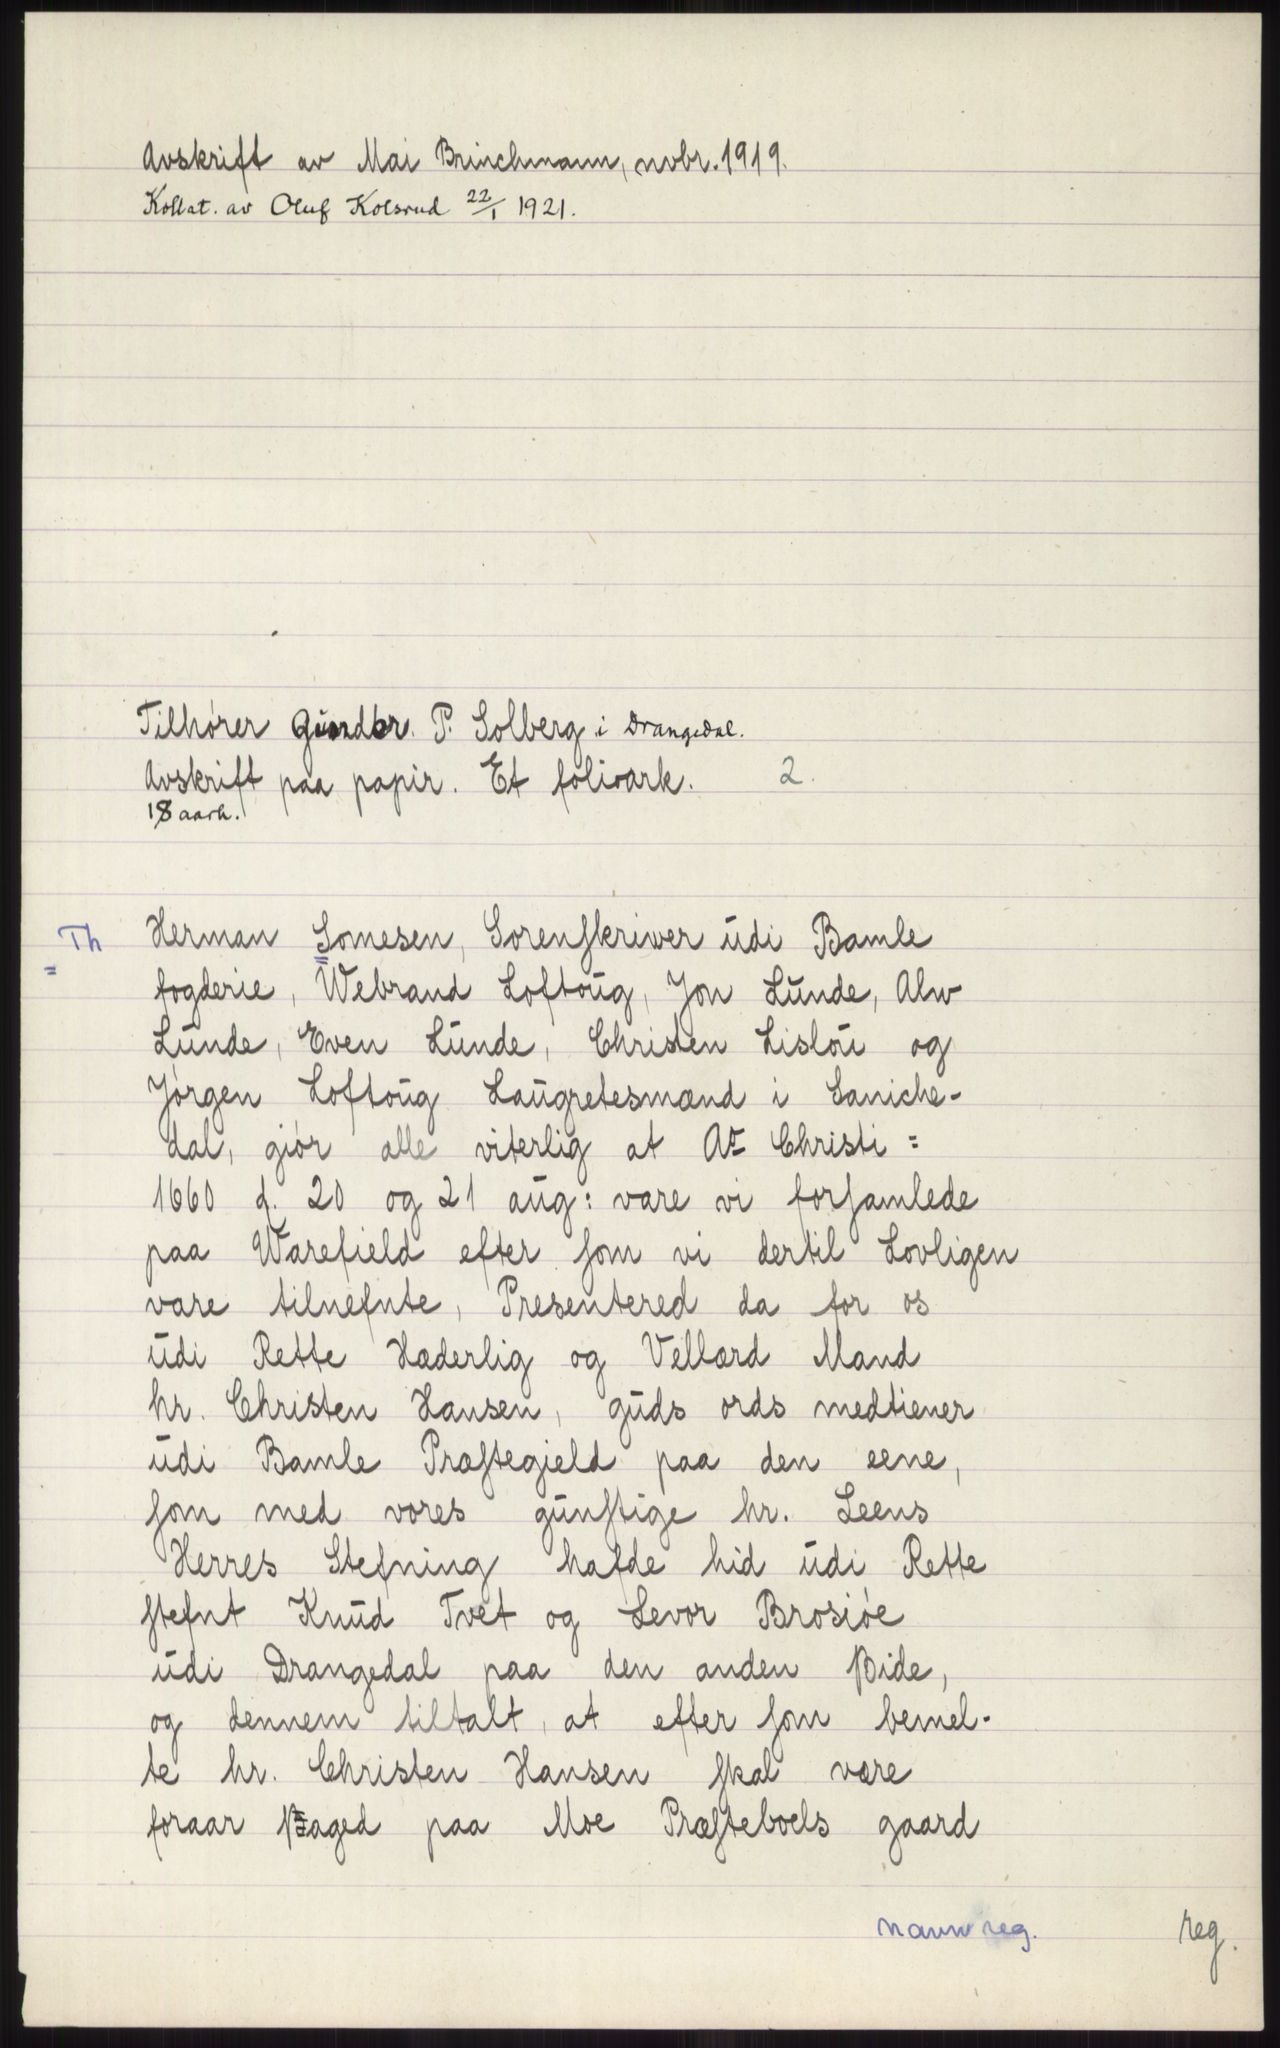 Avskrift av Mai Brinchmann, nvbr. 1919.
Kollat. av Oluf Kolsrud 22/1 1921.
Tilhører P. Solberg i Drangedal.
Avskrift paa papir. Et folioark. 2.
18 aarh.
Th Herman Somesen, Sorenskriwer udi Bamle
fogderie, Webrand Loftoug, Jon Lunde, Alw
Lunde, Even Lunde, Christen Lisløu og
Jørgen Loftoug Laugretesmænd i Saniche-
dal, giør alle viterlig at Ao Christi =
1660 d. 20 og 21 aug: vare vi forsamlede
paa Warefield efter som vi dertil Lovligen
vare tilnefnte, Presentered da for os
udi Rette Hæderlig og Vellærd Mand
hr. Christen Hansen, guds ords medtiener
udi Bamle Præstegield paa den eene,
som med vores gunstige hr. Leens
Herres Stefning hafde hid udi Rette
stefnt Knud Tvet og Levor Brosiøe
udi Drangedal paa den anden Side,
og dennem tiltalt, at efter som bemel-
te hr. Christen Hansen skal være
foraar aaged paa Moe Præsteboels gaard
navnreg.
reg.